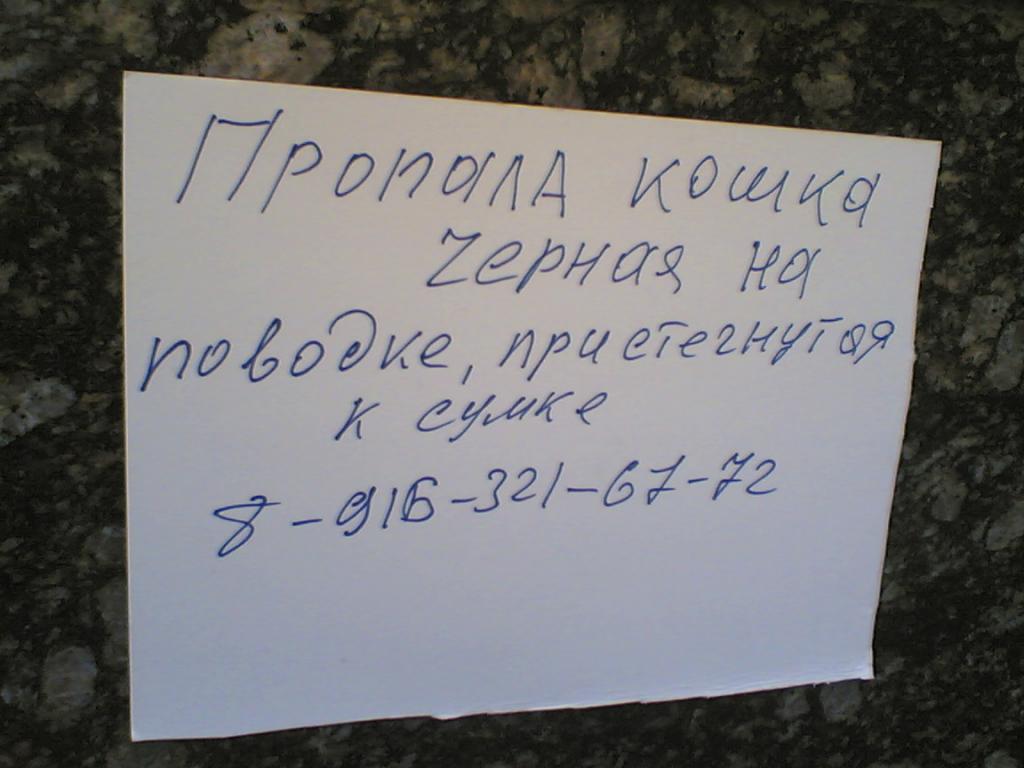 Пропала кошка
черная на
поводке, пристегнутая
к сумке
8-916-321-67-72